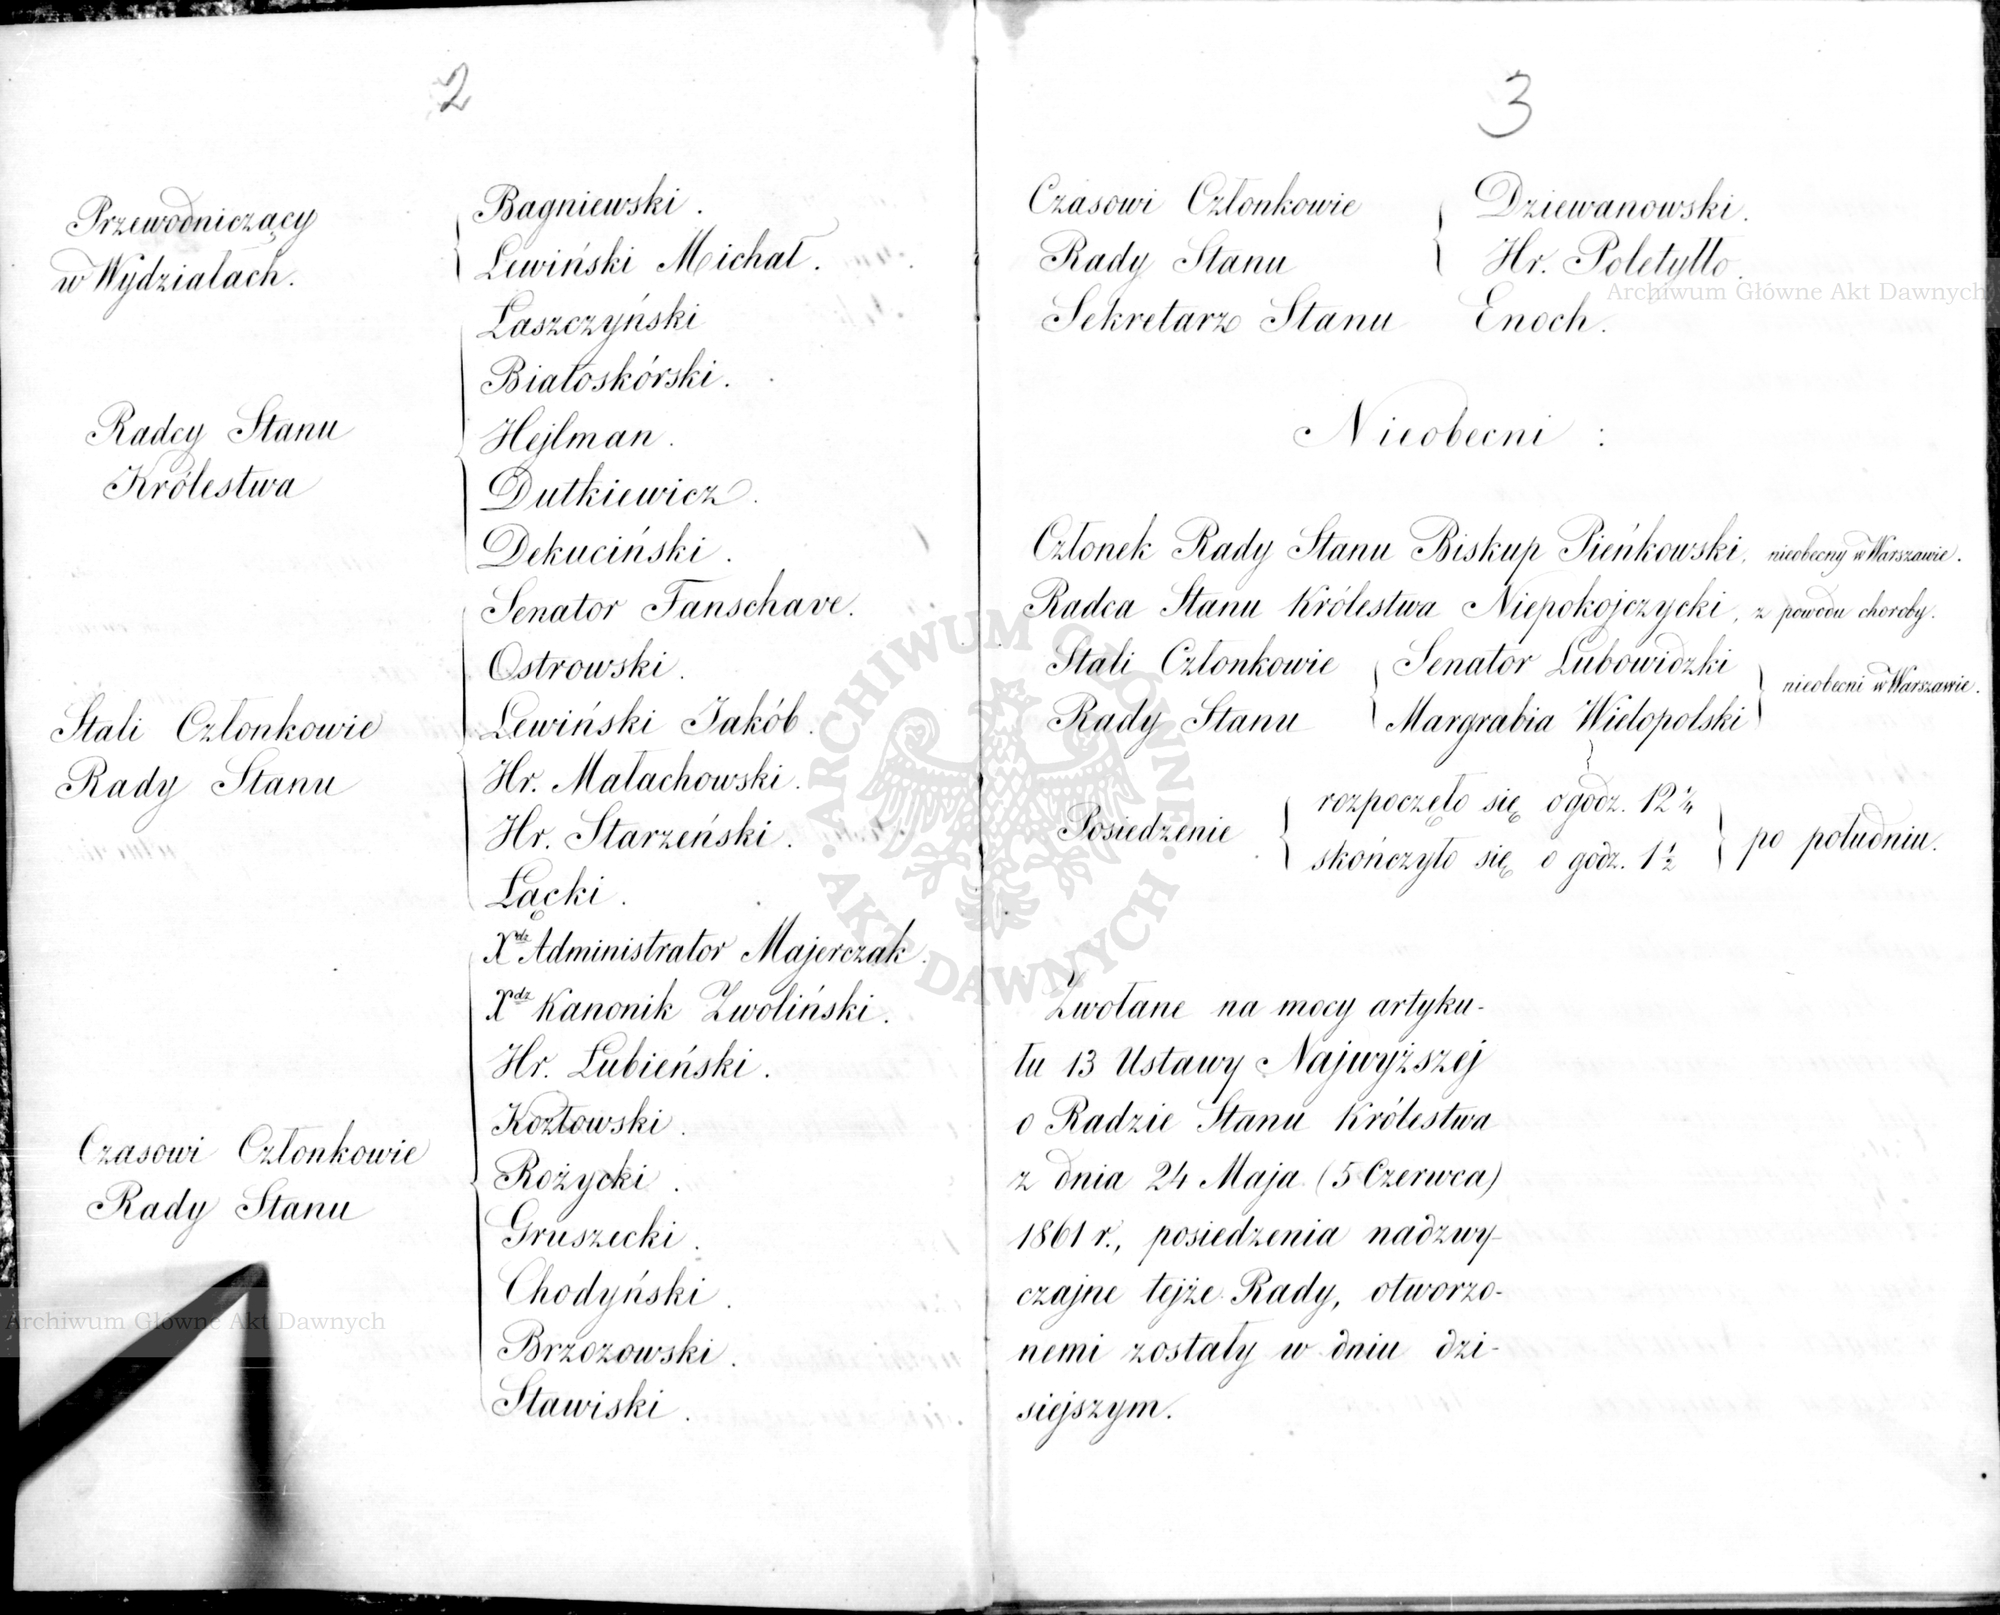 2
Przewodniczący
w Wydziałach.
Bagniewski.
Lewiński Michał.
Radcy Stanu
Królestwa
Łaszczyński
Białoskórski.
Hejlman.
Dutkiewicz.
Dekuciński.
Stali Członkowie
Rady Stanu
Senator Fanschave.
Ostrowski.
Lewiński Jakób.
Hr. Małachowski.
Hr. Starzeński.
Łącki.
Czasowi Członkowie
Rady Stanu
Xdz Administrator Majerczak.
Xdz Kanonik Zwoliński.
Hr. Łubieński.
Kozłowski.
Rożycki.
Gruszecki.
Chodyński.
Brzozowski.
Stawiski.
3
Czasowi Członkowie
Rady Stanu
Dziewanowski.
Hr. Poletyłło.
Sekretarz Stanu Enoch.
Nieobecni:
Członek Rady Stanu Biskup Pieńkowski, nieobecny w Warszawie.
Radca Stanu Królestwa Niepokojczycki, z powodu choroby.
Stali Członkowie
Rady Stanu
Senator Łubowidzki
Margrabia Wielopolski
nieobecni w Warszawie.
Posiedzenie
rozpoczęło się o godz. 12 1/4
skończyło się o godz. 1 1/2
po południu.
Zwołane na mocy artyku-
łu 13 Ustawy Najwyższej
o Radzie Stanu Królestwa
z dnia 24 Maja (5 Czerwca)
1861 r., posiedzenia nadzwy-
czajne tejże Rady, otworzo-
nemi zostały w dniu dzi-
siejszym.
Archiwum Główne Akt Dawnych
ARCHIWUM GŁÓWNE AKT DAWNYCH
Archiwum Główne Akt Dawnych